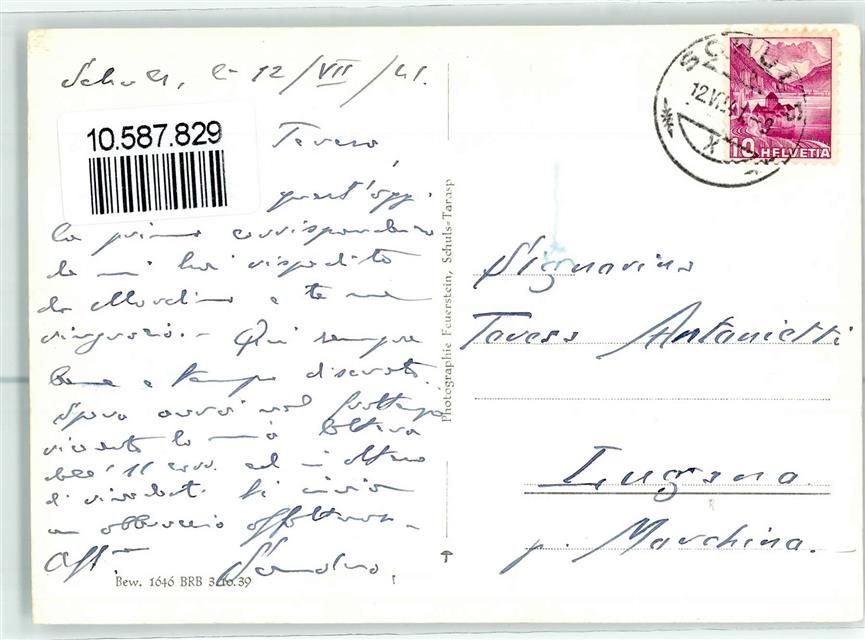 Schuls, 12/VII/41.
10.587.829
Teresa,
quest'oggi
la prima corrispondenza
che mi hai rispedito
da e te ne
ringrazio. - Qui sempre
bene e tempo discreto.
Spero avrai nel frattempo
ricevuto la mia lettera
dell'11 corr. ed in attesa
di rivederti ti invio
un abbraccio affettuoso -
Aff. Sandro
Bew. 1646 BRB 3.10.39
Photographie Feuerstein, Schuls-Tarasp
SCHULS
12.VII.41
10 HELVETIA
Signorina
Teresa Antonietti
Lugano
p. Marchino.